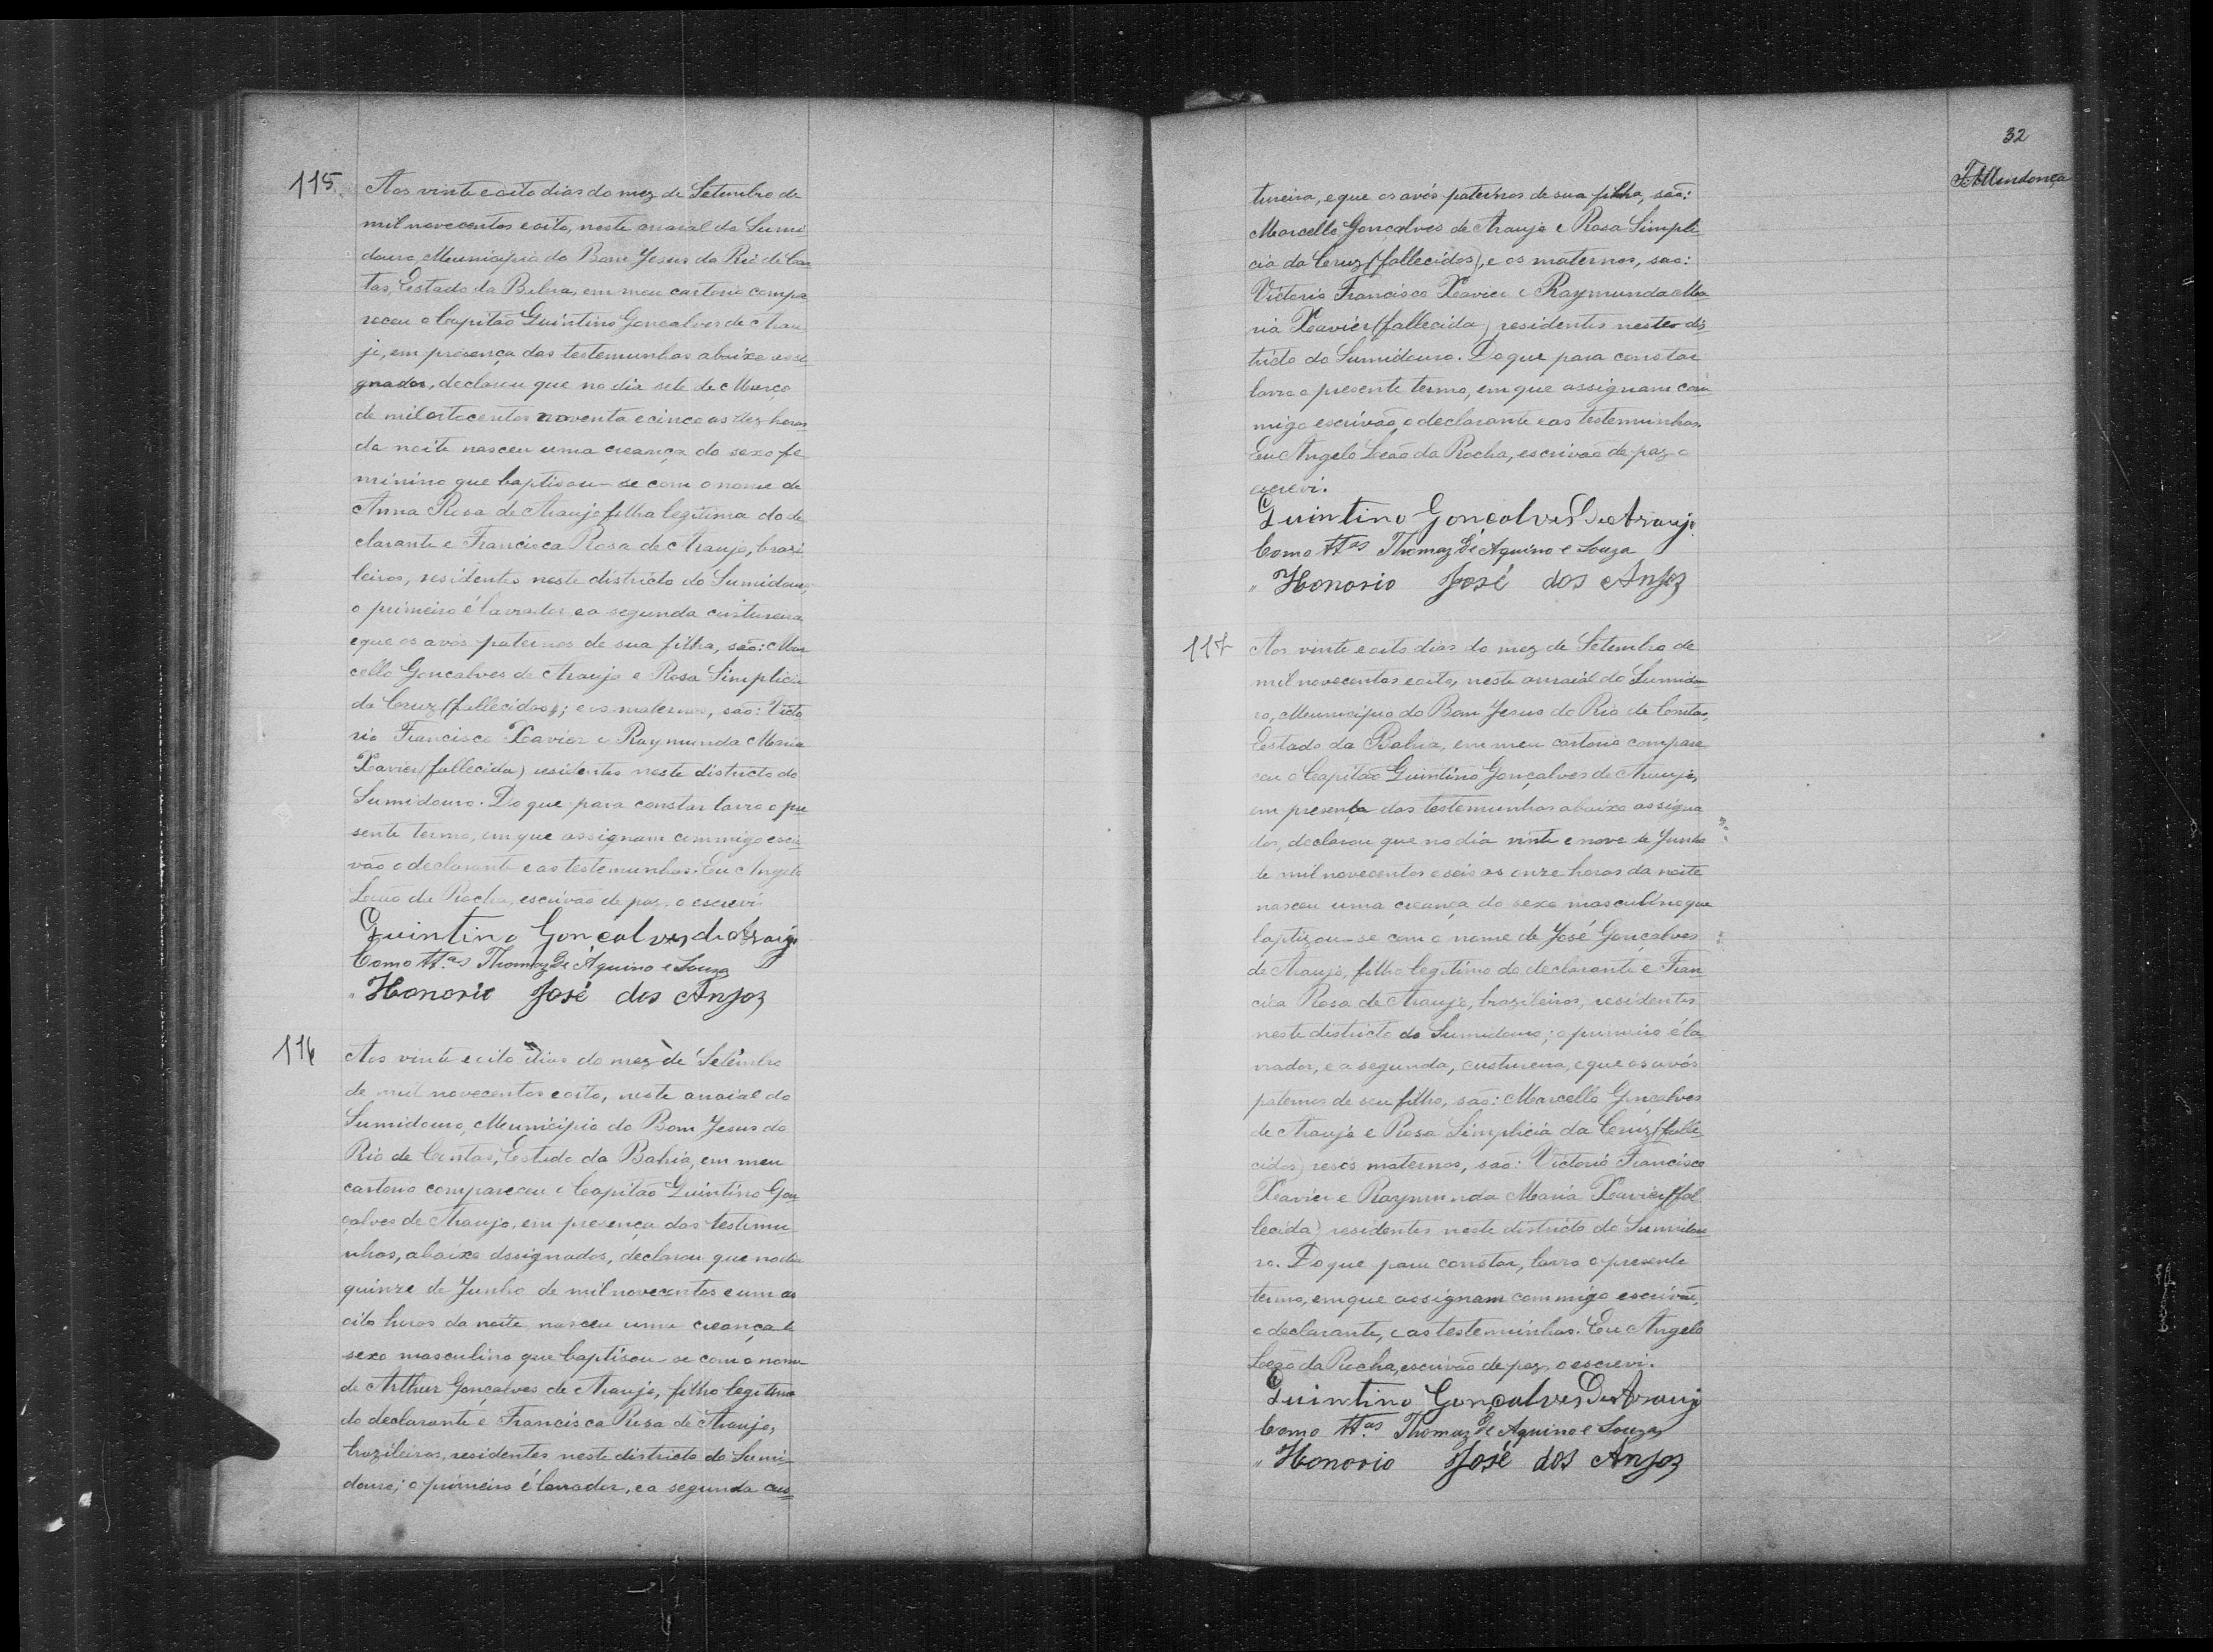 115.
Aos vinte e oito dias do mez de Setembro de
mil novecentos e oito, neste arraial do Sumi
douro, Municipio do Bom Jesus do Rio de Con
tas, Estado da Bahia, em meu cartorio compa
receu o Capitão Quintino Gonçalves de Arau
jo, em presença das testemunhas abaixo assi
gnadas, declarou que no dia sete de Março
de mil oitocentos noventa e cinco as dez horas
da noite nasceu uma creança do sexo fe
minino que baptisou-se com o nome de
Anna Rosa de Araujo filha legitima do de
clarante e Francisca Rosa de Araujo, brasi
leiros, residentes neste districto do Sumidouro,
o primeiro é lavrador e a segunda custureira
e que os avós paternos de sua filha, são: Mar
cello Gonçalves de Araujo e Rosa Simplicia
da Cruz (fallecidos); e os maternos, são: Victo
rio Francisco Xavier e Raymunda Maria
Xavier (fallecida) residentes neste districto do
Sumidouro. Do que para constar lavro o pre
sente termo, em que assignam commigo escri
vão o declarante e as testemunhas. Eu Angelo
Leão da Rocha, escrivão de paz o escrevi.
Quintino Gonçalves de Araujo
Como ttas Thomaz de Aquino e Souza
" Honorio José dos Anjos
116
Aos vinte e oito dias do mez de Setembro
de mil novecentos e oito, neste arraial do
Sumidouro, Municipio do Bom Jesus do
Rio de Contas, Estado da Bahia, em meu
cartorio compareceu o Capitão Quintino Gon
çalves de Araujo, em presença das testemu
nhas, abaixo assignados, declarou que no dia
quinze de Junho de mil novecentos e um as
oito horas da noite nasceu uma creança do
sexo masculino que baptisou-se com o nome
de Arthur Gonçalves de Araujo, filho legitimo
do declarante e Francisca Rosa de Araujo,
brazileiros, residentes neste districto do Sumi-
douro; o primeiro é lavrador, e a segunda cus=
32
F Mendonça
tureira, e que os avós paternos de sua filha, são:
Marcello Gonçalves de Araujo e Rosa Simpli
cia da Cruz (fallecidos), e os maternos, sao:
Victorio Francisco Xavier e Raymunda Ma
ria Xavier (fallecida) residentes neste dis
tricto do Sumidouro. Do que para constar
lavro o presente termo, em que assignam com
migo escrivão, o declarante e as testemunhas.
Eu Angelo Leão da Rocha, escrivão de paz o
escrevi.
Quintino Gonçalves De Araujo.
Como ttas Thomaz de Aquino e Souza
" Honorio José dos Anjos
117
Aos vinte e oito dias do mez de Setembro de
mil novecentos e oito, neste arraial do Sumidou
ro, Municipio do Bom Jesus do Rio de Contas,
Estado da Bahia, em meu cartorio compare
ceu o Capitão Quintino Gonçalves de Araujo,
em presença das testemunhas abaixo assigna
dos, declarou que no dia vinte e nove de Junho
de mil novecentos e seis as onze horas da noite
nasceu uma creança do sexo masculino que
baptizou-se com o nome de José Gonçalves
de Araujo, filho legitimo do declarante e Fran
cisca Rosa de Araujo, brazileiros, residentes
neste districto do Sumidouro; o primeiro é la
vrador, e a segunda, custureira, e que os avós
paternos de seu filho, são: Marcello Gonçalves
de Araujo e Rosa Simplicia da Cruz (falle
cidos) e os maternos, são: Victorio Francisco
Xavier e Raymunda Maria Xavier (fal
lecida) residentes neste districto do Sumidou
ro. Do que para constar, lavro o presente
termo, em que assignam commigo escrivão,
o declarante, e as testemunhas. Eu Angelo
Leão da Rocha, escrivão de paz o escrevi.
Quintino Gonçalves De Araujo
Como ttas Thomaz de Aquino e Souza
" Honorio José dos Anjos